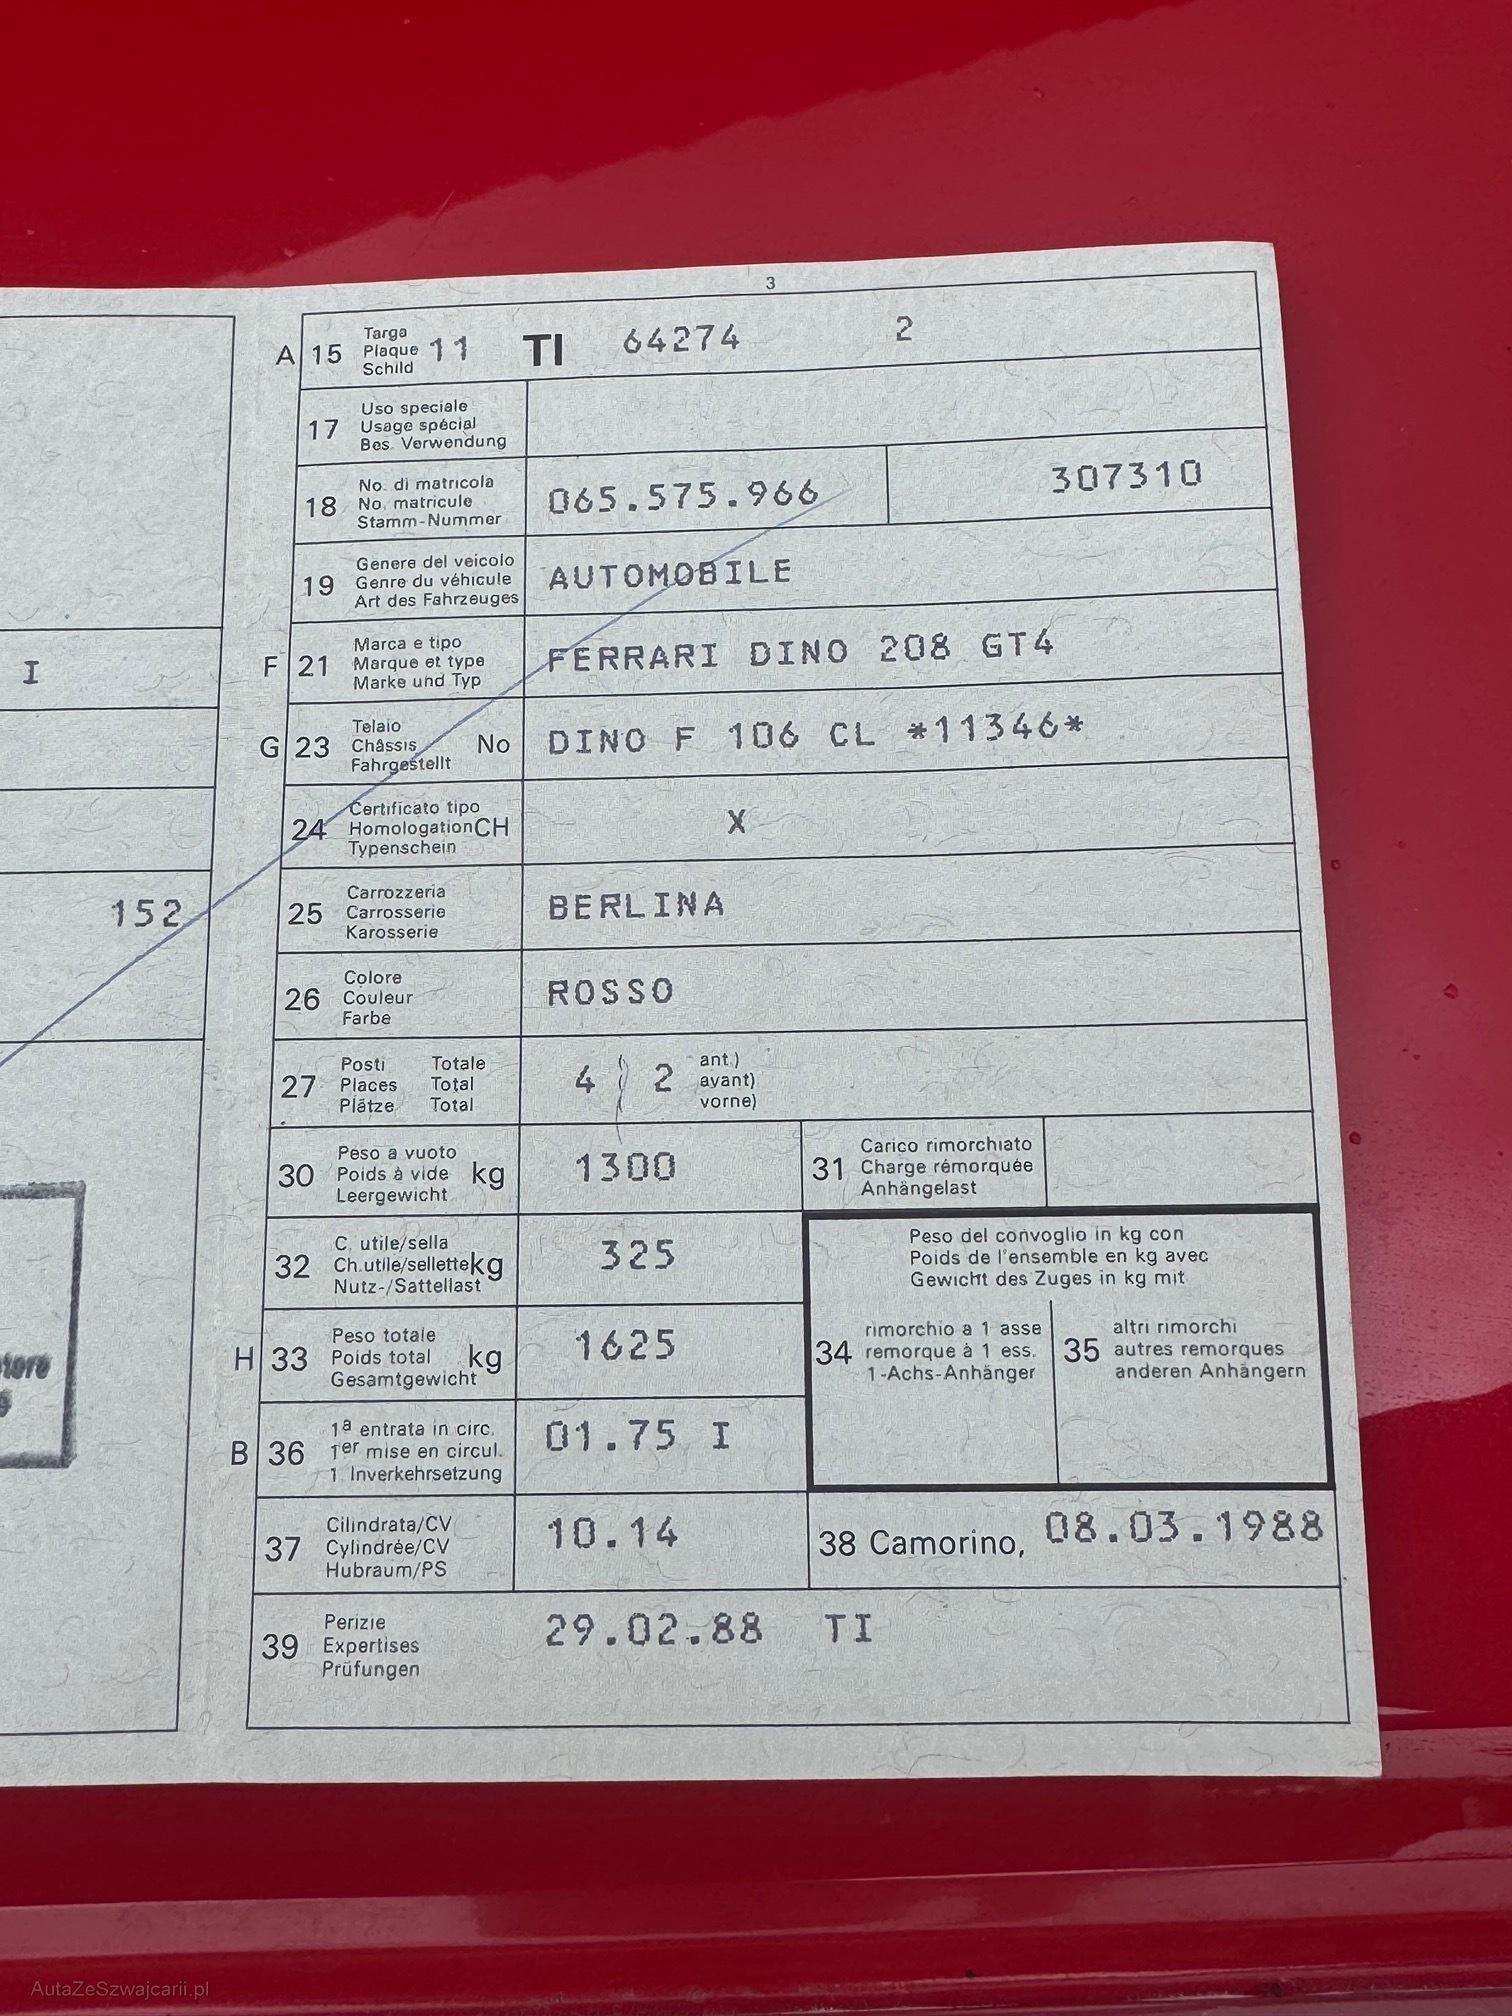 3
A 15 Targa Plaque Schild 11 TI 64274 2
17 Uso speciale
Usage spécial
Bes. Verwendung
18 No. di matricola
No. matricule
Stamm-Nummer
065.575.966 307310
19 Genere del veicolo
Genre du véhicule
Art des Fahrzeuges
AUTOMOBILE
I
F 21 Marca e tipo
Marque et type
Marke und Typ
FERRARI DINO 208 GT4
G 23 Telaio
Châssis No
Fahrgestellt
DINO F 106 CL *11346*
24 Certificato tipo
Homologation CH
Typenschein
X
152
25 Carrozzeria
Carrosserie
Karosserie
BERLINA
26 Colore
Couleur
Farbe
ROSSO
27 Posti Totale
Places Total
Plätze Total
4 2 ant.)
avant)
vorne)
30 Peso a vuoto
Poids à vide kg
Leergewicht
1300
31 Carico rimorchiato
Charge rémorquée
Anhängelast
32 C. utile/sella
Ch.utile/sellette kg
Nutz-/Sattellast
325
Peso del convoglio in kg con
Poids de l'ensemble en kg avec
Gewicht des Zuges in kg mit
H 33 Peso totale
Poids total kg
Gesamtgewicht
1625
34 rimorchio a 1 asse
remorque à 1 ess.
1-Achs-Anhänger
35 altri rimorchi
autres remorques
anderen Anhängern
B 36 1a entrata in circ.
1er mise en circul.
1. Inverkehrsetzung
01.75 I
37 Cilindrata/CV
Cylindrée/CV
Hubraum/PS
10.14
38 Camorino, 08.03.1988
39 Perizie
Expertises
Prüfungen
29.02.88 TI
AutaZeSzwajcarii.pl